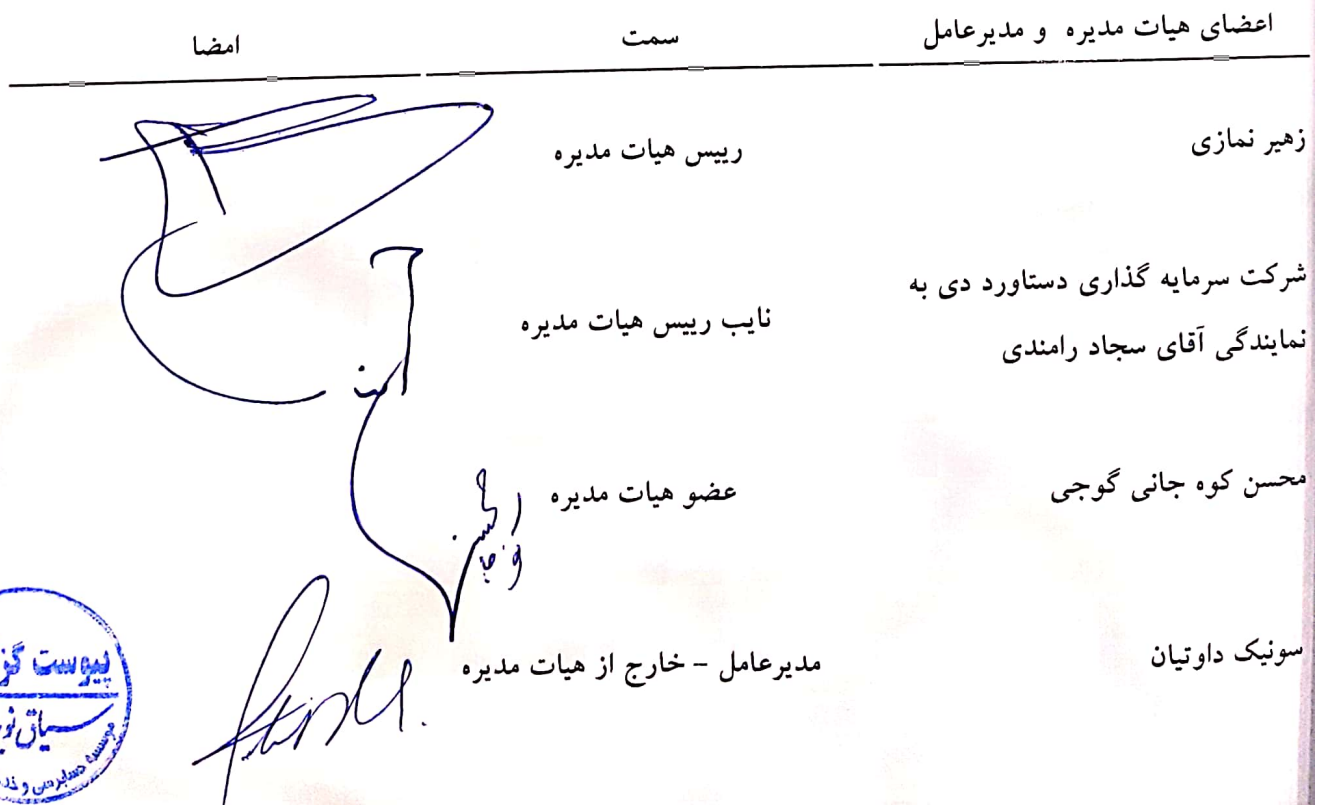 اعضای هیات مدیره و مدیرعامل سمت امضا
زهیر نمازی رییس هیات مدیره
شرکت سرمایه گذاری دستاورد دی به
نمایندگی آقای سجاد رامندی نایب رییس هیات مدیره
محسن کوه جانی گوجی عضو هیات مدیره
سونیک داوتیان مدیرعامل - خارج از هیات مدیره
پیوست